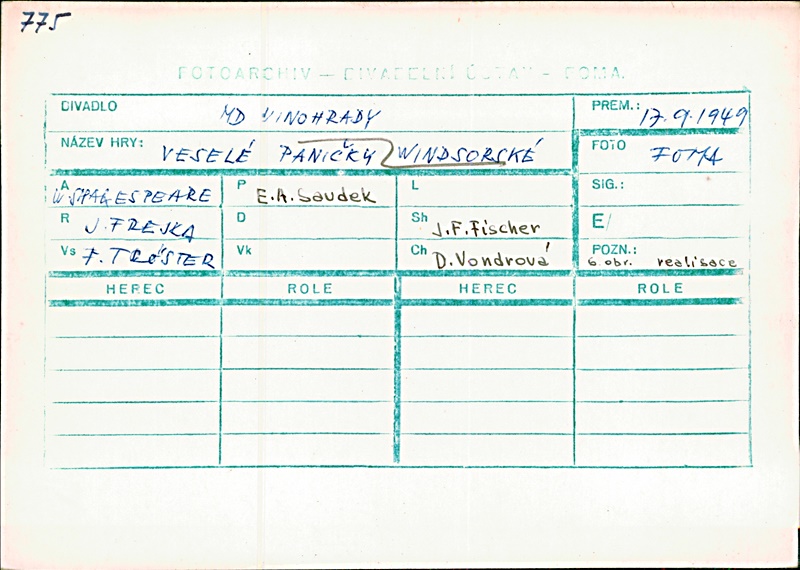 775
FOTOARCHIV – DIVADELNÍ ÚSTAV – DOMA.
DIVADLO MD VINOHRADY PREM.: 17.9.1949
NÁZEV HRY: VESELÉ PANIČKY WINDSORSKÉ FOTO FOMA
A W SHAKESPEARE P E.A. Saudek L SIG.:
R J. FREJKA D Sh J.F. Fischer E/
Vs F. TRÖSTER Vk Ch D. Vondrová POZN.: 6 obr. realisace
HEREC ROLE HEREC ROLE